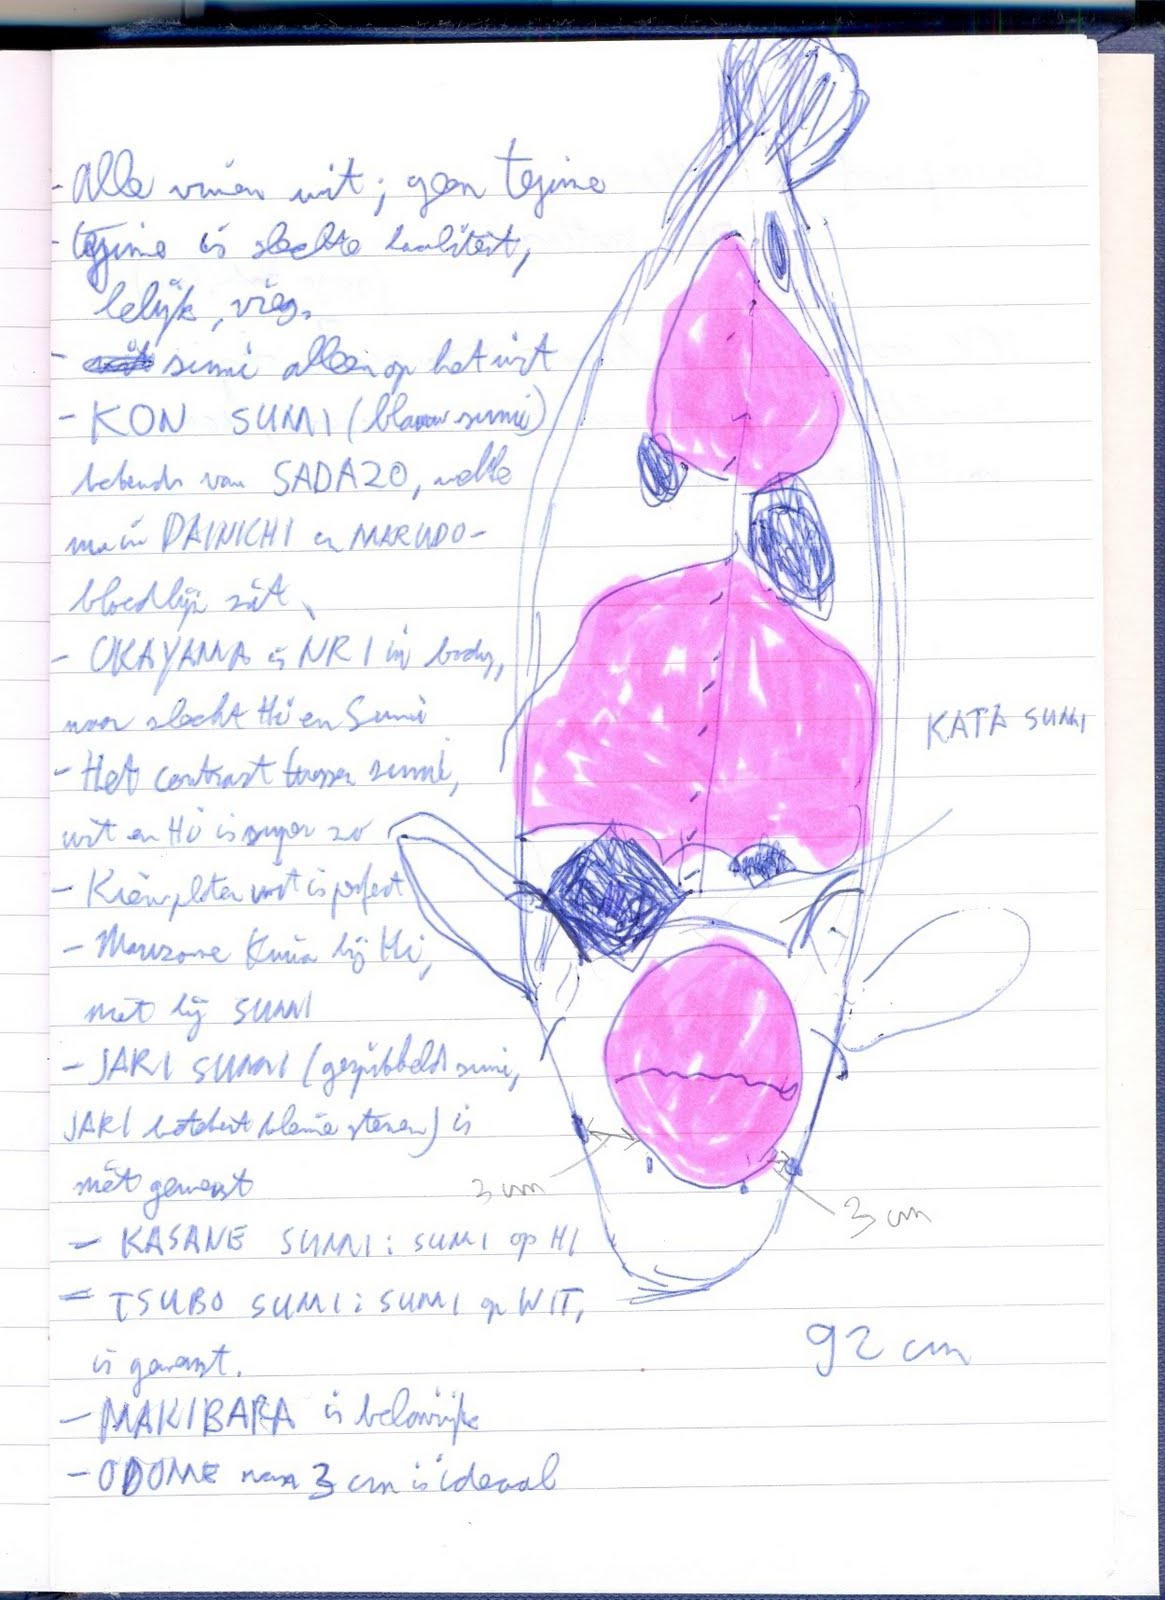 - Alle vinnen wit; geen tejime
- tejime is slechte kwaliteit,
lelijk, vies.
- sumi alleen op het wit
- KON SUMI (blauw sumi)
bekends van SADAZO, welke
in DAINICHI en MARUDO-
bloedlijn zit
- OKAYAMA is NR 1 in body,
maar slecht Hi en Sumi
- Het contrast tussen sumi,
wit en Hi is super zo
- Kieuwplaten wit is perfect
- Maruzome Kiwa bij Hi,
niet bij SUMI
- JARI SUMI (gespikkeld sumi,
JARI betekent kleine stenen) is
niet gewenst
- KASANE SUMI: SUMI op HI
- TSUBO SUMI: SUMI op WIT,
is gewenst.
- MAKIBARA is belangrijk
- ODOME van 3 cm is ideaal
KATA SUMI
3 cm
3 cm
92 cm